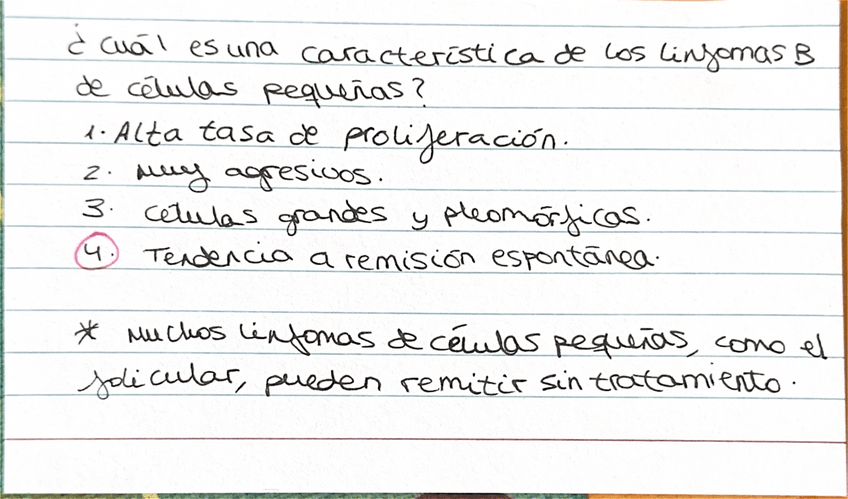 ¿Cuál es una característica de los linfomas B
de células pequeñas?
1. Alta tasa de proliferación.
2. Muy agresivos.
3. Células grandes y pleomórficas.
4. Tendencia a remisión espontánea.
* Muchos linfomas de células pequeñas, como el
folicular, pueden remitir sin tratamiento.